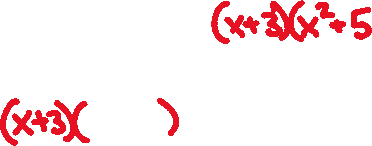 (x+3)(x²+5
(x+3)( )